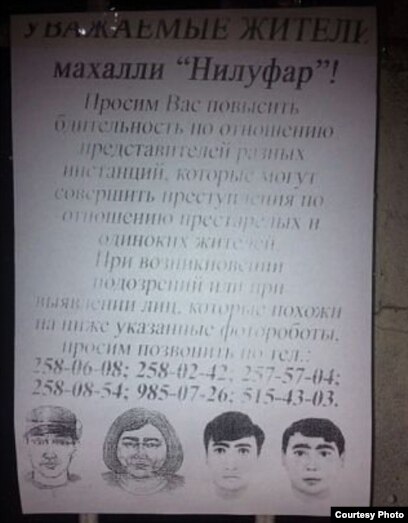 УВАЖАЕМЫЕ ЖИТЕЛИ
махалли “Нилуфар”!
Просим Вас повысить
бдительность по отношению
представителей разных
инстанций, которые могут
совершить преступления по
отношению престарелых и
одиноких жителей
При возникновении
подозрений или при
выявлении лиц, которые похожи
на ниже указанные фотороботы,
просим позвонить по тел.:
258-06-08; 258-02-42; 257-57-04;
258-08-54; 985-07-26; 515-43-03.
Courtesy Photo